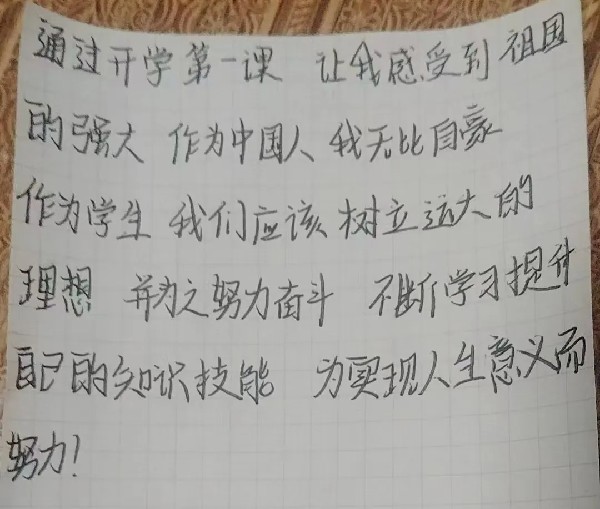 通过开学第一课 让我感受到祖国
的强大 作为中国人 我无比自豪
作为学生 我们应该 树立远大的
理想 并为之努力奋斗 不断学习提升
自己的知识技能 为实现人生意义而
努力!